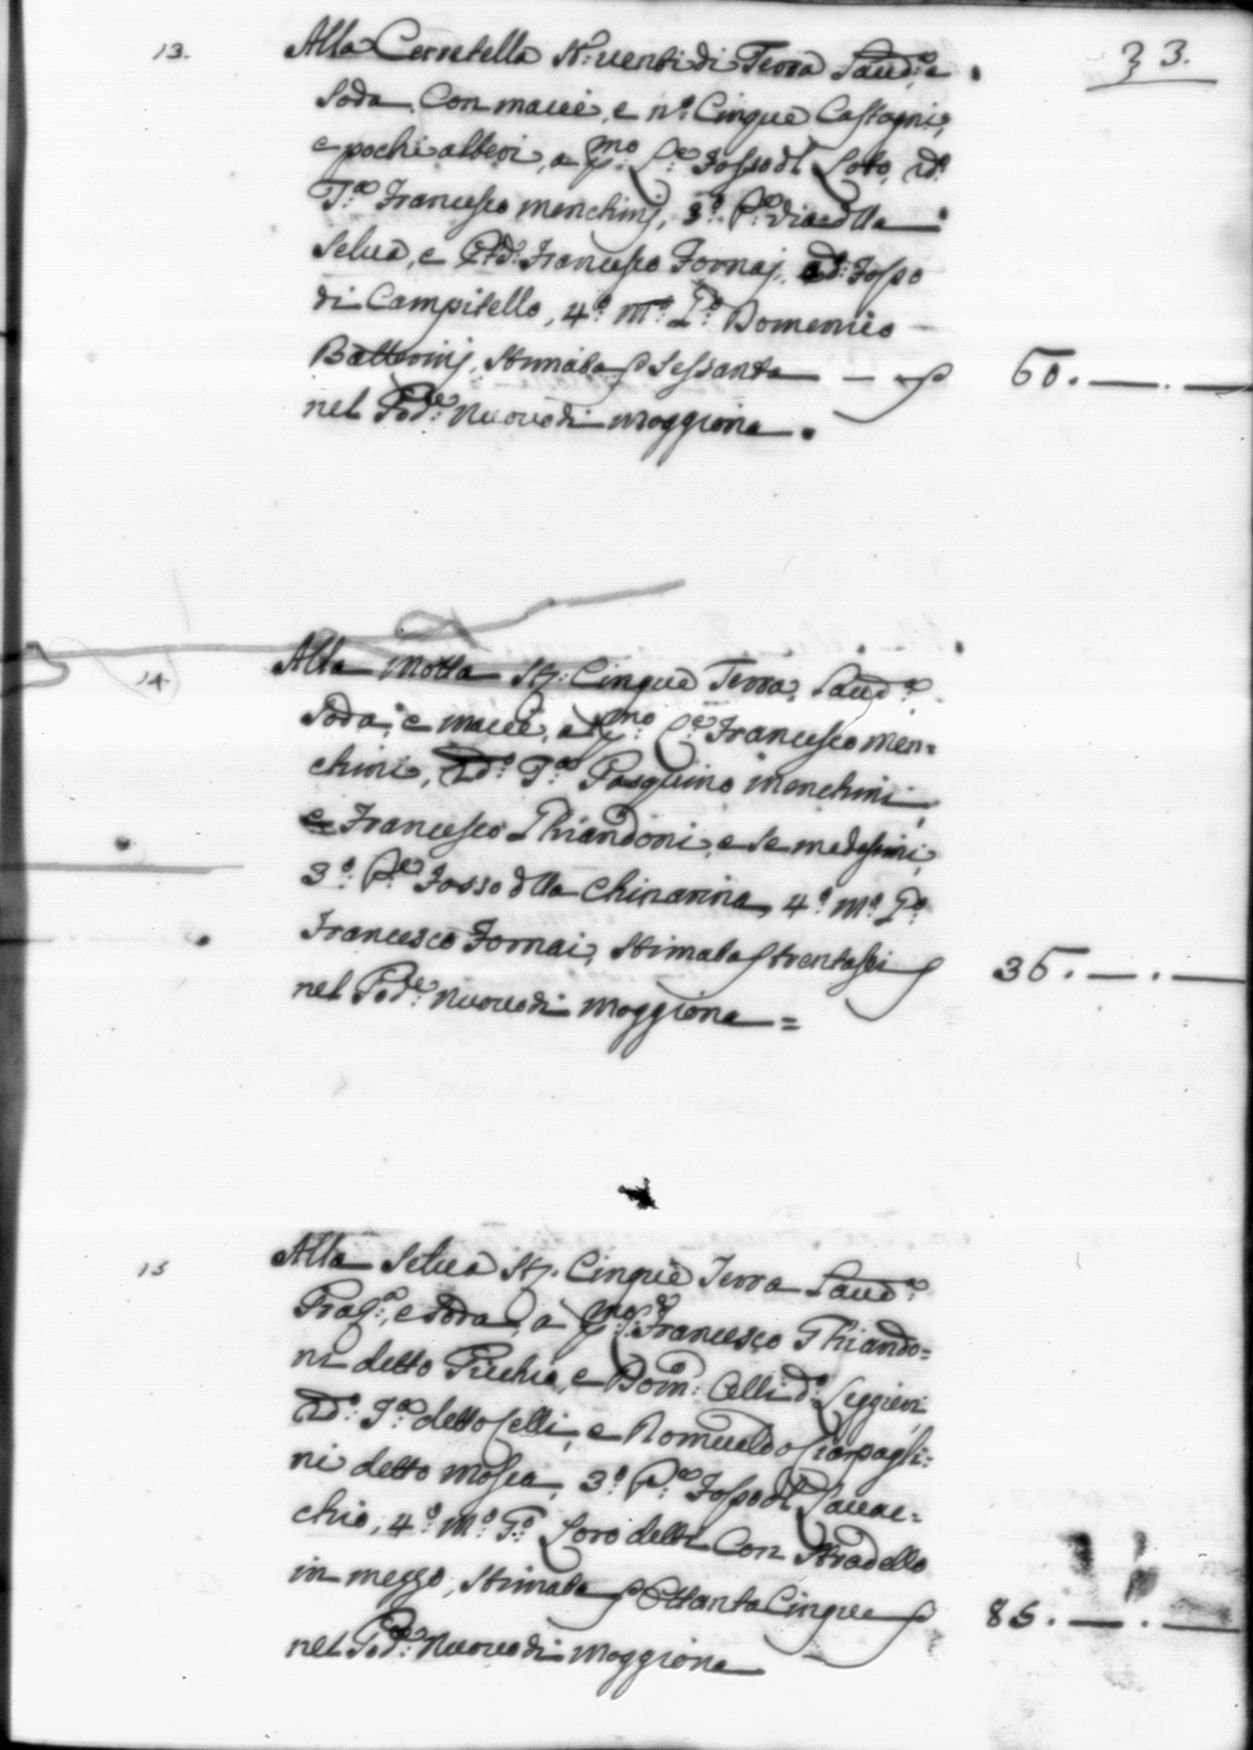 33.
13. Alla Cerretella St: venti di Terra Laud:a
Soda, Con macie, e n:o Cinque Castagni,
e pochi alberi, a p:mo L:e Fosso dl Loto, 2d:o
T:a Francesco Menchinj, 3:o P:e Via dlla
Selva, e Francesco Fornaj, Fosso
di Campitello, 4:o M:o T:o Domenico
Batterinj, Stimata S Sessanta — S 60. — . —
nel Pod:e Nuovo di Moggiona.
14. Alla Motta St: Cinque Terra Laud:a
Soda, e macie, a p:mo L:e Francesco Men=
chini, 2d:o T:a Pasquino Menchini,
e Francesco Ghiandoni, e Se medesimi,
3:o P:e Fosso dlla Chinarina, 4:o M:o T:o
Francesco Fornai, Stimata S trentasei S 36. — . —
nel Pod:e Nuovo di Moggiona =
15 Alla Selva St: Cinque Terra Laud:a
Prat:a, e Soda, a p:mo Francesco Ghiando=
ni detto Picchio, e Dom: Celli d:o Leggieri,
2d:o T:a detto Celli, e Romualdo Ciarpagli=
ni detto Mosca, 3:o P:e Fosso dl Lavac=
chio, 4:o M:o T:o Loro detti Con Stradello
in mezzo, Stimata S Ottanta Cinque S 85. — . —
nel Pod:e Nuovo di Moggiona